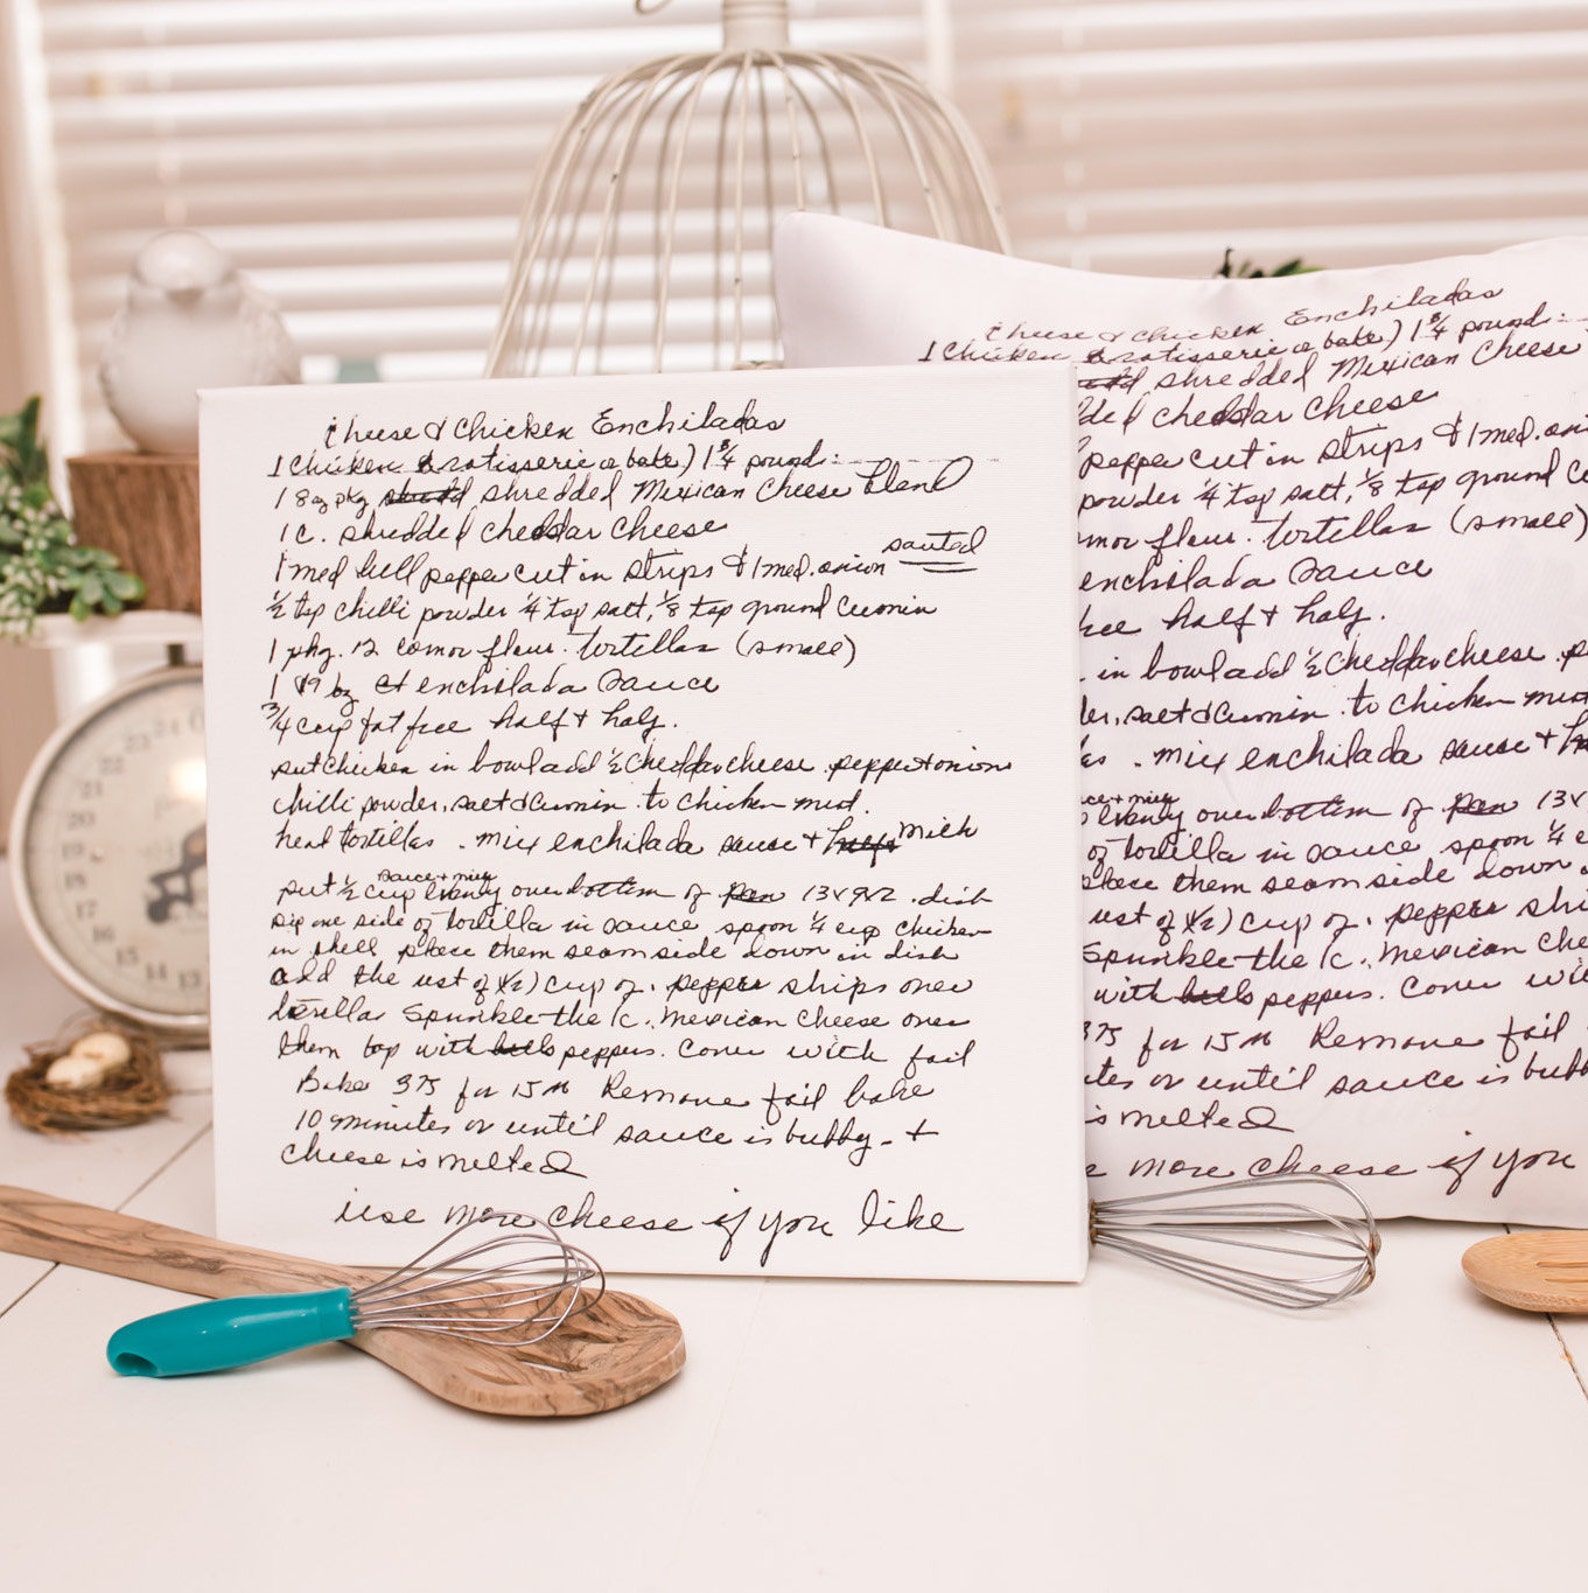 Cheese & Chicken Enchiladas
1 Chicken rotisserie or bake) 1 3/4 pound
1 8 oz pkg shredded Mexican Cheese blend
1 c. shredded cheddar cheese
1 med bell pepper cut in strips & 1 med. onion sauted
1/2 tsp chilli powder 1/4 tsp salt, 1/8 tsp ground Cumin
1 pkg. 12 flour tortillas (small)
1 19 oz enchilada sauce
3/4 cup fat free half + half.
put chicken in bowl add 1/2 cheddar cheese pepper + onions
chilli powder, salt & Cumin to chicken meat.
heat tortillas. mix enchilada sauce + half milk
sauce + milk
put 1/2 cup evenly over bottom of pan 13x9x2 dish
Dip one side of tortilla in sauce spoon 1/4 cup chicken
in shell place them seam side down in dish
add the rest of (1/2) cup of pepper strips over
tortillas Sprinkle the 1 c. Mexican Cheese over
them top with bells peppers. Cover with foil
Bake 375 for 15 m Remove foil bake
10 minutes or until sauce is bubbly +
cheese is melted
use more cheese if you like
Cheese & Chicken Enchiladas
1 Chicken rotisserie or bake) 1 3/4 pound
shredded Mexican Cheese
cheddar cheese
pepper cut in strips & 1 med.
powder 1/4 tsp salt, 1/8 tsp ground
flour tortillas (small)
enchilada sauce
half + half.
in bowl add 1/2 cheddar cheese
salt & Cumin to chicken
mix enchilada sauce +
evenly over bottom of pan 13x
of tortilla in sauce spoon 1/4
place them seam side down
rest of (1/2) cup of pepper
Sprinkle the 1 c. Mexican
with bells peppers. Cover
375 for 15 m Remove foil
or until sauce is
is melted
more cheese if you
24
23
22
21
20
19
18
17
16
15
14
13